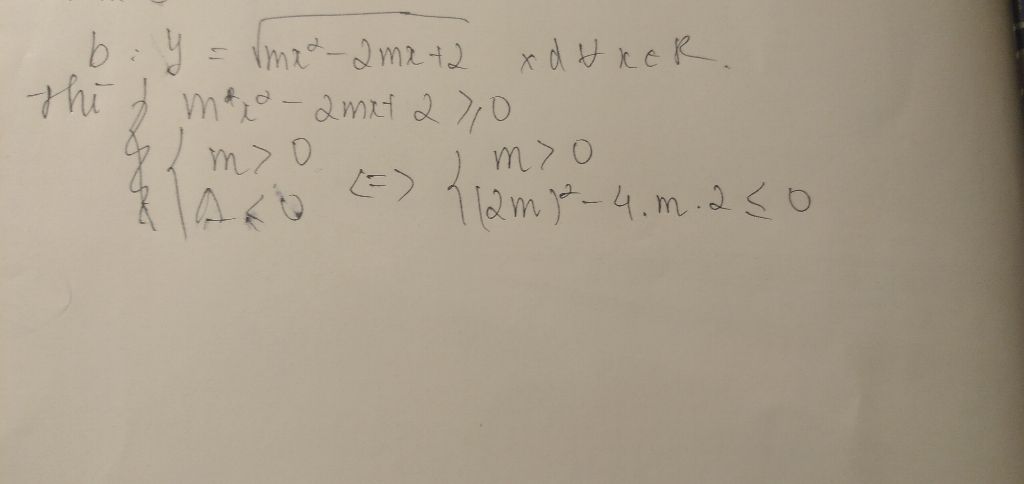 b : y = √(mx² - 2mx + 2) xd ∀ x ∈ R.
thì mx² - 2mx + 2 ≥ 0
{ m > 0 <=> { m > 0
{ Δ ≤ 0 { (2m)² - 4.m.2 ≤ 0